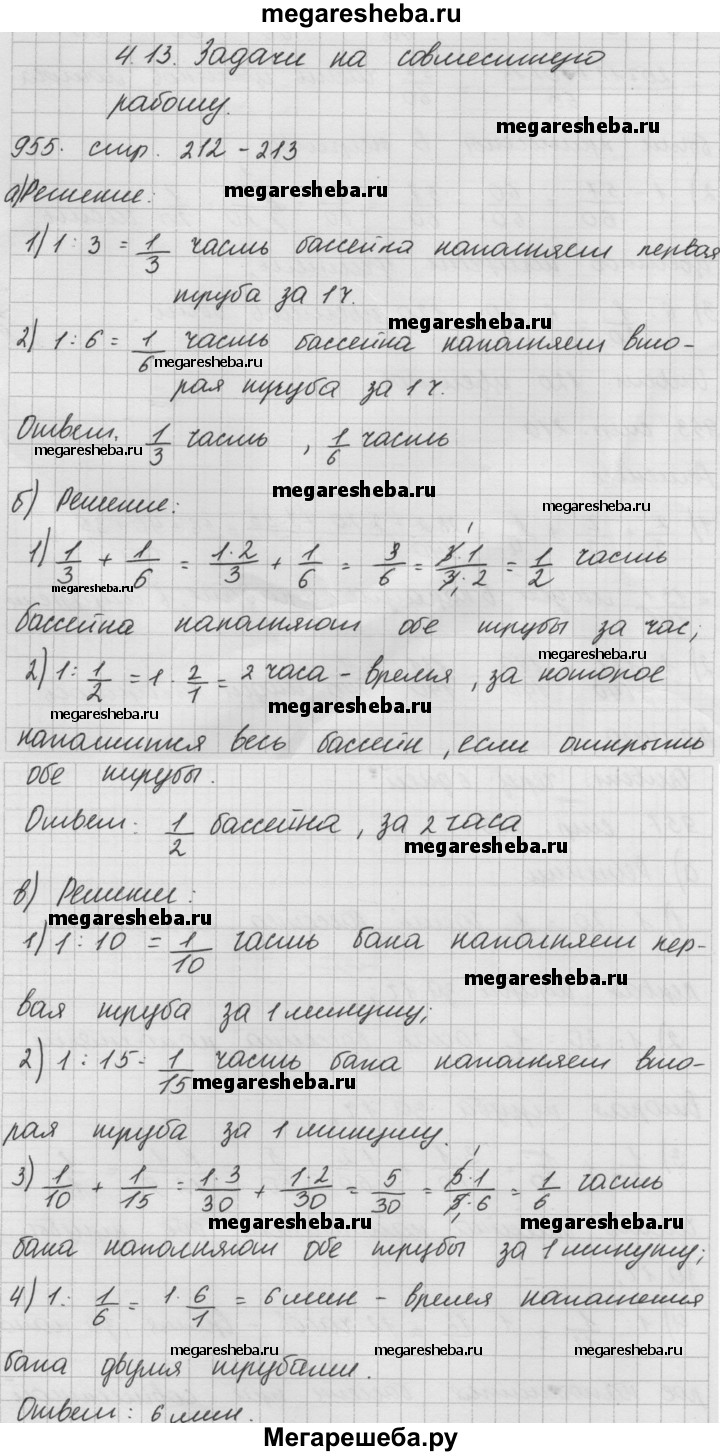 megaresheba.ru
4.13. Задачи на совместную
работу.
megaresheba.ru
955. стр. 212 - 213
а) Решение:
megaresheba.ru
1) 1 : 3 = 1/3 часть бассейна наполняет первая
труба за 1 ч.
megaresheba.ru
2) 1 : 6 = 1/6 часть бассейна наполняет вто-
megaresheba.ru
рая труба за 1 ч.
Ответ. 1/3 часть , 1/6 часть
megaresheba.ru
megaresheba.ru
б) Решение:
megaresheba.ru
1) 1/3 + 1/6 = 1·2/3 + 1/6 = 3/6 = 3·1/3·2 = 1/2 часть
megaresheba.ru
бассейна наполняют обе трубы за час;
megaresheba.ru
2) 1 : 1/2 = 1 · 2/1 = 2 часа - время, за которое
megaresheba.ru
megaresheba.ru
наполнится весь бассейн, если открыть
обе трубы.
Ответ: 1/2 бассейна, за 2 часа
megaresheba.ru
в) Решение:
megaresheba.ru
1) 1 : 10 = 1/10 часть бака наполняет пер-
megaresheba.ru
вая труба за 1 минуту;
2) 1 : 15 = 1/15 часть бака наполняет вто-
megaresheba.ru
рая труба за 1 минуту.
3) 1/10 + 1/15 = 1·3/30 + 1·2/30 = 5/30 = 5·1/5·6 = 1/6 часть
megaresheba.ru
megaresheba.ru
бака наполняют обе трубы за 1 минуту;
4) 1 : 1/6 = 1·6/1 = 6 мин - время наполнения
megaresheba.ru
megaresheba.ru
бака двумя трубами.
Ответ: 6 мин.
Мегарешеба.ру